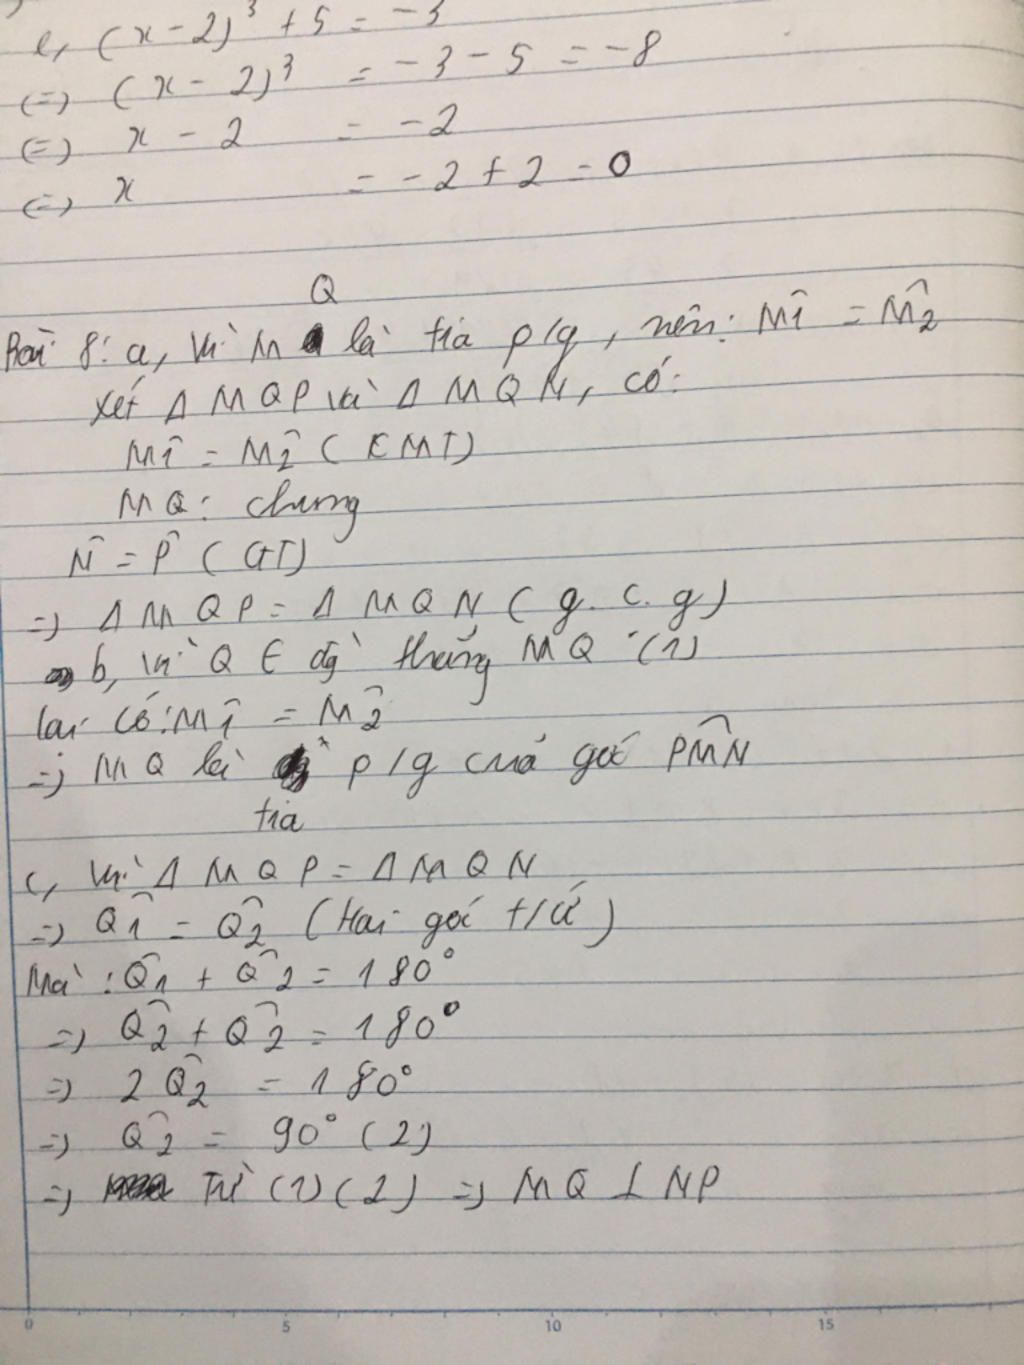 e, (x - 2)³ + 5 = -3
(=) (x - 2)³ = -3 - 5 = -8
(=) x - 2 = -2
(=) x = -2 + 2 = 0
Q
Bài 8: a, Vì M là tia p/g, nên: M̂1 = M̂2
xét Δ MQP và Δ MQN, có:
M̂1 = M̂2 (CMT)
MQ: chung
N̂ = P̂ (GT)
=) Δ MQP = Δ MQN (g.c.g)
b, Vì Q ∈ đg` thẳng MQ (1)
lại có: M̂1 = M̂2
=) MQ là p/g của góc PM̂N
tia
c, Vì Δ MQP = Δ MQN
=) Q̂1 = Q̂2 (Hai góc t/ư)
Mà: Q̂1 + Q̂2 = 180°
=) Q̂2 + Q̂2 = 180°
=) 2Q̂2 = 180°
=) Q̂2 = 90° (2)
=) Từ (1)(2) =) MQ ⊥ NP
0 5 10 15